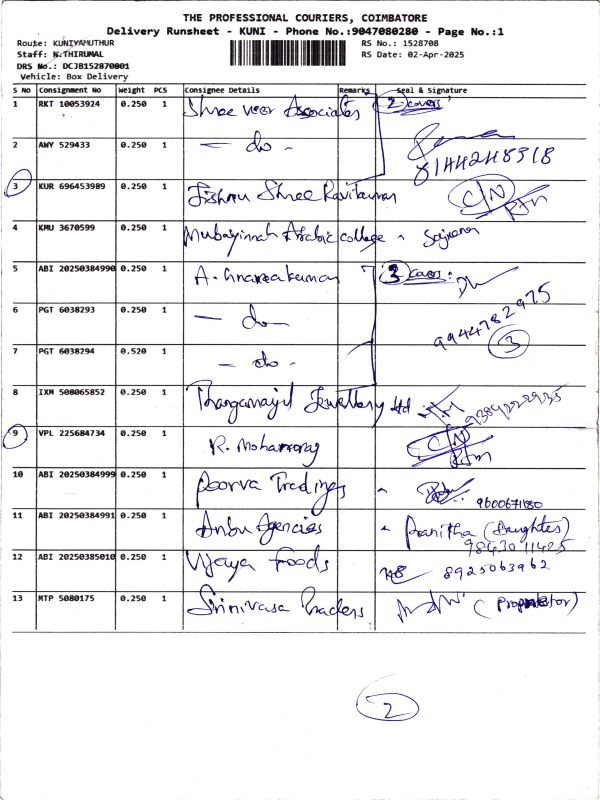 THE PROFESSIONAL COURIERS, COIMBATORE
Delivery Runsheet - KUNI - Phone No.:9047080280 - Page No.:1
Route: KUNIYAMUTHUR RS No.: 1528708
Staff: N.THIRUMAL RS Date: 02-Apr-2025
DRS No.: DCJB152870801
Vehicle: Box Delivery
S No Consignment No Weight PCS Consignee Details Remarks Seal & Signature
1 RKT 10053924 0.250 1 Shree veer Associates 2 covers
2 AWY 529433 0.250 1 — do — 8144248318
3 KUR 696453989 0.250 1 Shree Ravikumar C/N
4 KMU 3670599 0.250 1 Mubayinnah Arabic college
5 ABI 20250384990 0.250 1 A. 3 covers:
6 PGT 6038293 0.250 1 — do — 9944782975
7 PGT 6038294 0.520 1 — do — 3
8 IXM 508065852 0.250 1 Thangamayil Jewellery ltd
9 VPL 225684734 0.250 1 R. Mohanraj C/N
10 ABI 20250384999 0.250 1 Poorva Tradings
11 ABI 20250384991 0.250 1 Anbu Agencies Pranitha (Daughter)
9843011425
12 ABI 20250385010 0.250 1 Vijaya Foods 8925063962
13 MTP 5080175 0.250 1 Srinivasa Traders (Proprietor)
2